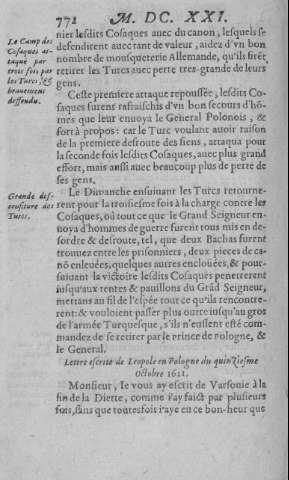 772 M. DC. XXI.
nier lesdits Cosaques auec du canon, lesquels se
defendirent auec tant de valeur, aidez d'vn bon
nombre de mousqueterie Allemande, qu'ils firēt
retirer les Turcs auec perte tres-grande de leurs
gens.
Le Camp des
Cosaques at-
taqué par
trois fois par
les Turcs, &
brauement
deffendu.
Ceste premiere attaque repoussée, lesdits Co-
saques furent rafraischis d'vn bon secours d'hō-
mes que leur enuoya le General Polonois, &
fort à propos: car le Turc voulant auoir raison
de la premiere desroute des siens, attaqua pour
la seconde fois lesdits Cosaques, auec plus grand
effort, mais aussi auec beaucoup plus de perte de
ses gens.
Grande des-
confiture des
Turcs.
Le Dimanche ensuiuant les Turcs retourne-
rent pour la troisiesme fois à la charge contre les
Cosaques, où tout ce que le Grand Seigneur en-
uoya d'hommes de guerre furent tous mis en de-
sordre & desroute, tel, que deux Bachas furent
trouuez entre les prisonniers, deux pieces de ca-
nō enleuées, quelques autres enclouées, & pour-
suiuant la victoire lesdits Cosaques penetrerent
iusqu'aux tentes & pauillons du Grād Seigneur,
mettans au fil de l'espée tout ce qu'ils rencontre-
rent: & vouloient passer plus outre iusqu'au gros
de l'armée Turquesque, s'ils n'eussent esté com-
mandez de se retirer par le Prince de Pologne, &
le General.
Lettre escrite de Leopole en Pologne du quinZiesme
Octobre 1621.
Monsieur, Ie vous ay escrit de Varsouie à la
fin de la Diette, comme i'ay faict par plusieurs
fois, sans que toutesfois i'aye eu ce bon-heur que